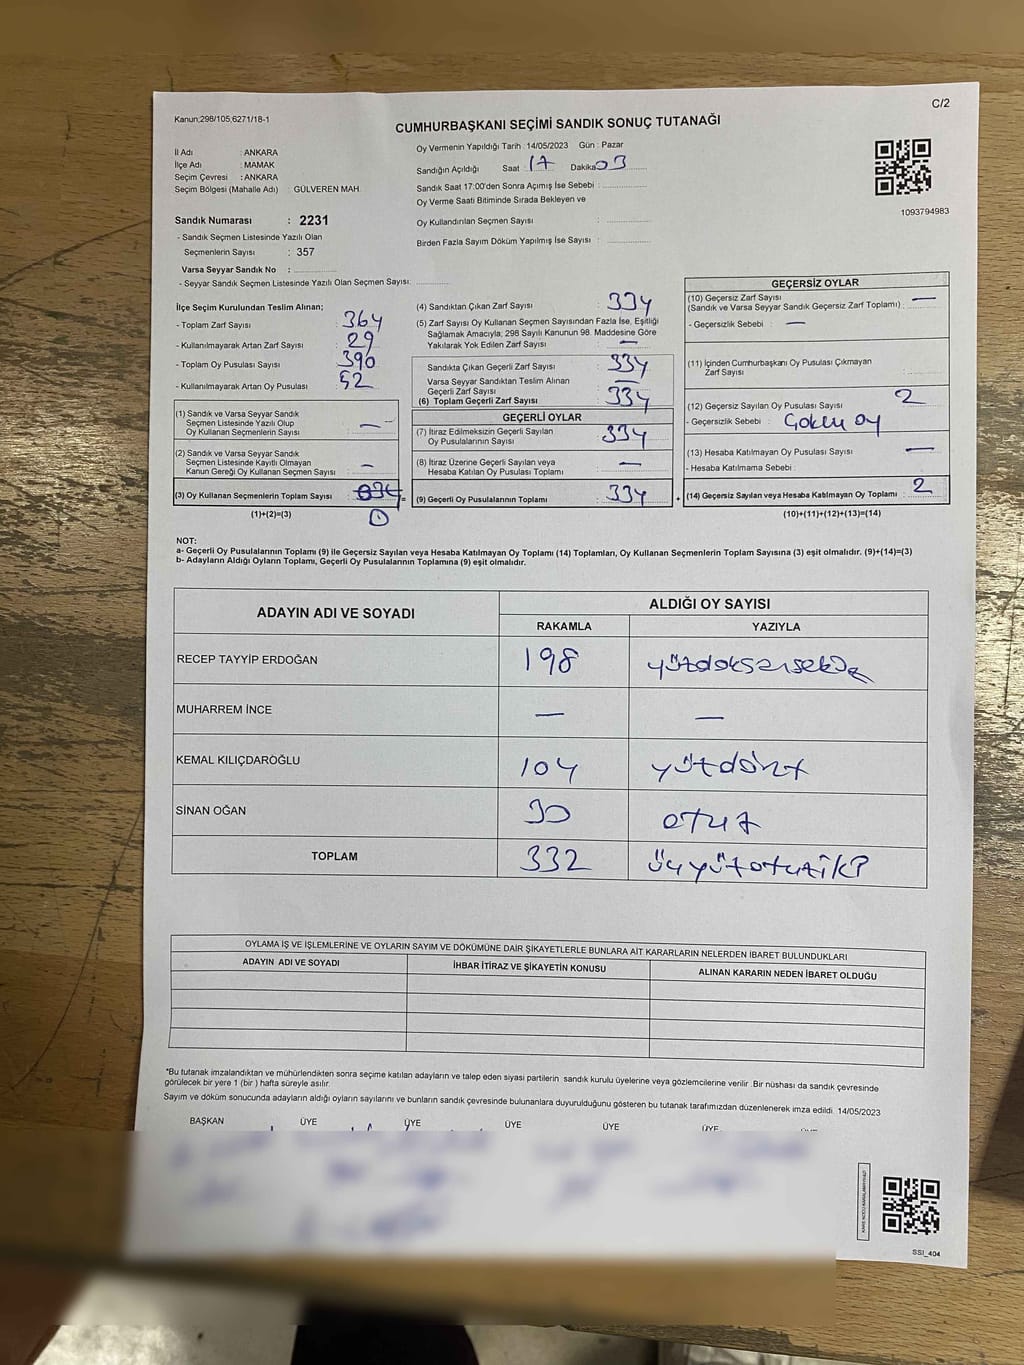 C/2
Kanun;298/105,6271/18-1
CUMHURBAŞKANI SEÇİMİ SANDIK SONUÇ TUTANAĞI
İl Adı : ANKARA
İlçe Adı : MAMAK
Seçim Çevresi : ANKARA
Seçim Bölgesi (Mahalle Adı) : GÜLVEREN MAH.
Sandık Numarası : 2231
- Sandık Seçmen Listesinde Yazılı Olan
Seçmenlerin Sayısı : 357
Varsa Seyyar Sandık No :
- Seyyar Sandık Seçmen Listesinde Yazılı Olan Seçmen Sayısı:
Oy Vermenin Yapıldığı Tarih : 14/05/2023 Gün : Pazar
Sandığın Açıldığı Saat 17 Dakika 03
Sandık Saat 17:00'den Sonra Açımış İse Sebebi :
Oy Verme Saati Bitiminde Sırada Bekleyen ve
Oy Kullandırılan Seçmen Sayısı :
Birden Fazla Sayım Döküm Yapılmış İse Sayısı :
1093794983
İlçe Seçim Kurulundan Teslim Alınan;
- Toplam Zarf Sayısı : 364
- Kullanılmayarak Artan Zarf Sayısı : 29
- Toplam Oy Pusulası Sayısı : 390
- Kullanılmayarak Artan Oy Pusulası : 52
(1) Sandık ve Varsa Seyyar Sandık
Seçmen Listesinde Yazılı Olup
Oy Kullanan Seçmenlerin Sayısı : —
(2) Sandık ve Varsa Seyyar Sandık
Seçmen Listesinde Kayıtlı Olmayan
Kanun Gereği Oy Kullanan Seçmen Sayısı : —
(3) Oy Kullanan Seçmenlerin Toplam Sayısı : 334 =
(1)+(2)=(3)
(4) Sandıktan Çıkan Zarf Sayısı : 334
(5) Zarf Sayısı Oy Kullanan Seçmen Sayısından Fazla İse, Eşitliği
Sağlamak Amacıyla; 298 Sayılı Kanunun 98. Maddesine Göre
Yakılarak Yok Edilen Zarf Sayısı : —
Sandıkta Çıkan Geçerli Zarf Sayısı : 334
Varsa Seyyar Sandıktan Teslim Alınan
Geçerli Zarf Sayısı : —
(6) Toplam Geçerli Zarf Sayısı : 334
GEÇERLİ OYLAR
(7) İtiraz Edilmeksizin Geçerli Sayılan
Oy Pusulalarının Sayısı : 334
(8) İtiraz Üzerine Geçerli Sayılan veya
Hesaba Katılan Oy Pusulası Toplamı : —
(9) Geçerli Oy Pusulalarının Toplamı : 334 +
GEÇERSİZ OYLAR
(10) Geçersiz Zarf Sayısı : —
(Sandık ve Varsa Seyyar Sandık Geçersiz Zarf Toplamı) :
- Geçersizlik Sebebi : —
(11) İçinden Cumhurbaşkanı Oy Pusulası Çıkmayan
Zarf Sayısı :
(12) Geçersiz Sayılan Oy Pusulası Sayısı : 2
- Geçersizlik Sebebi : Çoklu oy
(13) Hesaba Katılmayan Oy Pusulası Sayısı : —
- Hesaba Katılmama Sebebi :
(14) Geçersiz Sayılan veya Hesaba Katılmayan Oy Toplamı : 2
(10)+(11)+(12)+(13)=(14)
NOT:
a- Geçerli Oy Pusulalarının Toplamı (9) ile Geçersiz Sayılan veya Hesaba Katılmayan Oy Toplamı (14) Toplamları, Oy Kullanan Seçmenlerin Toplam Sayısına (3) eşit olmalıdır. (9)+(14)=(3)
b- Adayların Aldığı Oyların Toplamı, Geçerli Oy Pusulalarının Toplamına (9) eşit olmalıdır.
ADAYIN ADI VE SOYADI ALDIĞI OY SAYISI
RAKAMLA YAZIYLA
RECEP TAYYİP ERDOĞAN 198 yüzdoksansekiz
MUHARREM İNCE — —
KEMAL KILIÇDAROĞLU 104 yüzdört
SİNAN OĞAN 30 otuz
TOPLAM 332 üçyüzotuziki
OYLAMA İŞ VE İŞLEMLERİNE VE OYLARIN SAYIM VE DÖKÜMÜNE DAİR ŞİKAYETLERLE BUNLARA AİT KARARLARIN NELERDEN İBARET BULUNDUKLARI
ADAYIN ADI VE SOYADI İHBAR İTİRAZ VE ŞİKAYETİN KONUSU ALINAN KARARIN NEDEN İBARET OLDUĞU
*Bu tutanak imzalandıktan ve mühürlendikten sonra seçime katılan adayların ve talep eden siyasi partilerin sandık kurulu üyelerine veya gözlemcilerine verilir .Bir nüshası da sandık çevresinde
görülecek bir yere 1 (bir ) hafta süreyle asılır.
Sayım ve döküm sonucunda adayların aldığı oyların sayılarını ve bunların sandık çevresinde bulunanlara duyurulduğunu gösteren bu tutanak tarafımızdan düzenlenerek imza edildi. 14/05/2023
BAŞKAN ÜYE ÜYE ÜYE ÜYE ÜYE
SSI_404